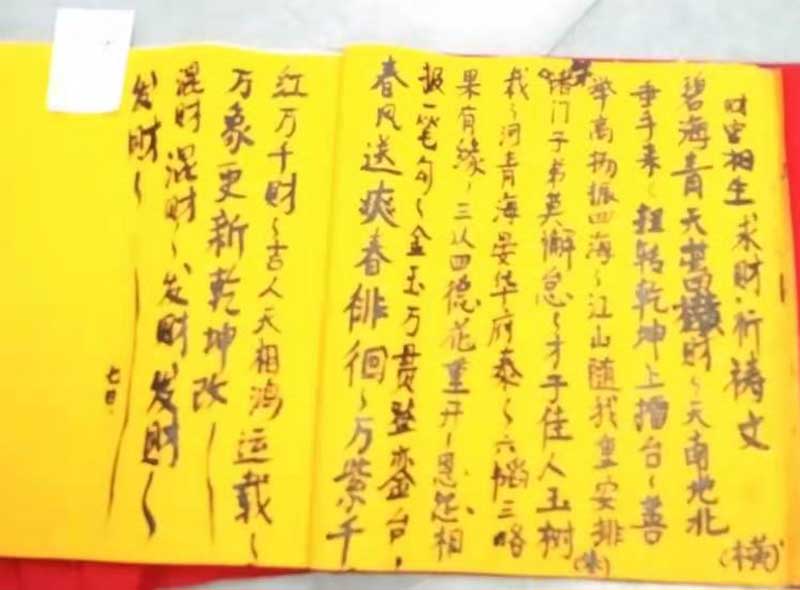 财官相生求财祈祷文
碧海青天萬橫财～天南地北(横)
垂手来～扭转乾坤上擂台～善
举高扬振四海～江山随我皇安排
诸门子弟莫懈怠～才子佳人玉树(来)
栽～河青海晏华府泰～六韬三略
果有缘～三从四德花重开～恩怨相
报一笔勾～金玉万贯登銮台，
春风送爽春徘徊～万紫千
红万千财～吉人天相鸿运载～
万象更新乾坤改～
混财混财～发财发财～
发财～
七日.